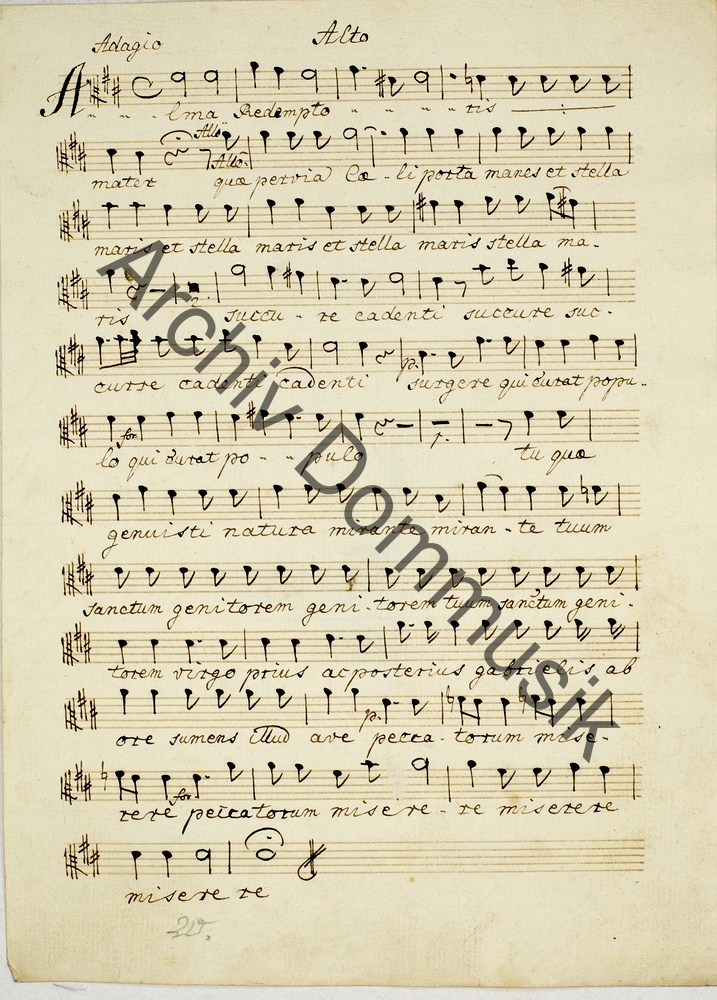 Adagio Alto
Alma Redempto - - - - tis
Allo
mater Allo quæ pervia Cœ - li porta manes et stella
maris et stella maris et stella maris stella ma-
ris succu - re cadenti succure suc-
curre cadenti cadenti p. surgere qui curat popu-
lo for qui curat po - - pulo tu quæ
genuisti natura mirante miran - te tuum
sanctum genitorem geni-torem tuum sanctum geni-
torem virgo prius ac posterius gabrielis ab
ore sumens illud ave p. pecca-torum mise-
rere for peccatorum misere-re miserere
miserere
Archiv Dommusik